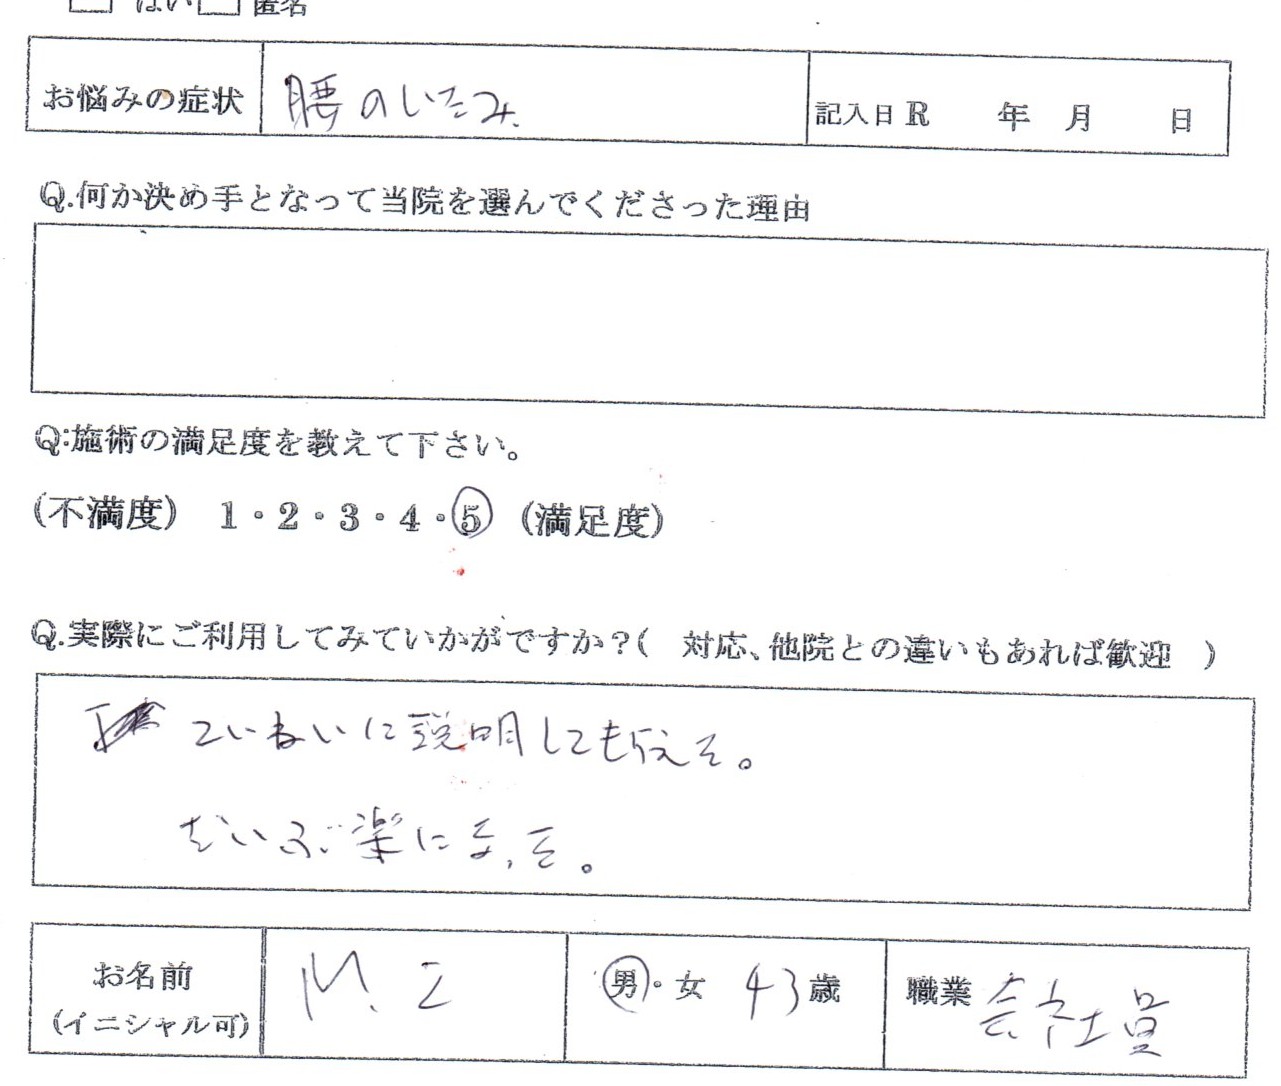 □ はい □ 匿名
お悩みの症状 腰のいたみ. 記入日 R 年 月 日
Q.何か決め手となって当院を選んでくださった理由
Q:施術の満足度を教えて下さい。
(不満度) 1・2・3・4・5 (満足度)
Q.実際にご利用してみていかがですか?( 対応、他院との違いもあれば歓迎 )
ていねいに説明してもらえた。
だいぶ楽になった。
お名前 M. I 男・女 43歳 職業 会社員
(イニシャル可)